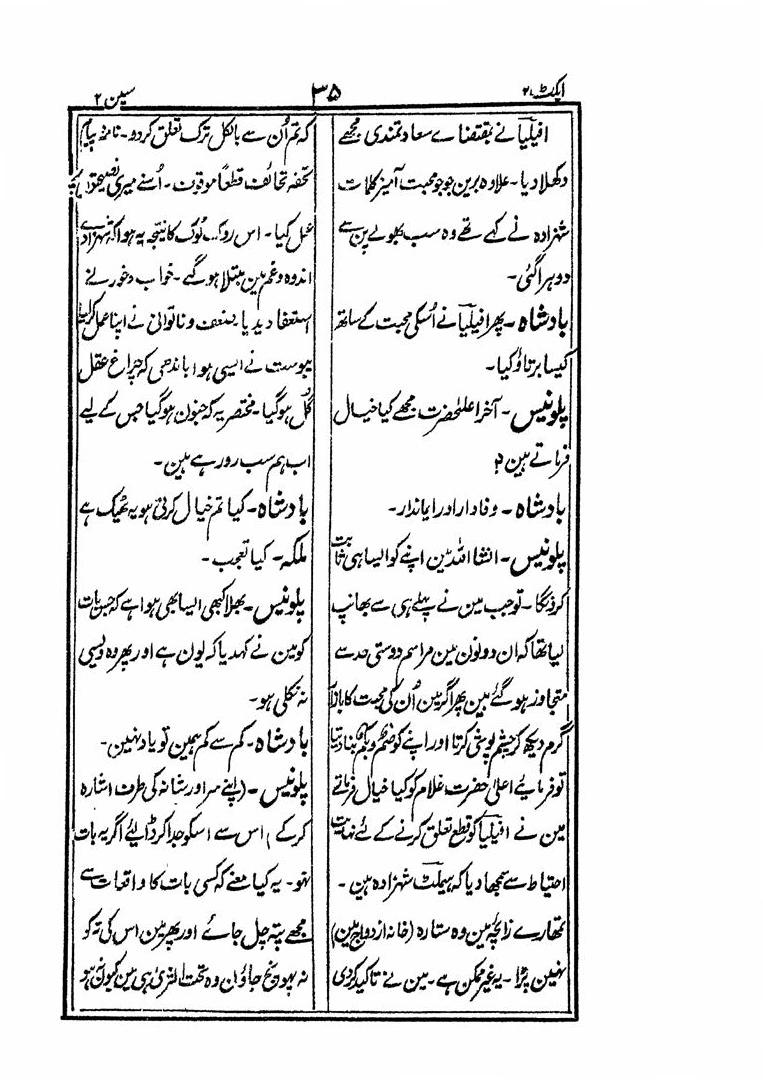 ایکٹ ۲
۳۵
سین ۲
افیلیا نے بمقتضاے سعادتمندی مجھے
دکھلا دیا۔ علاوہ برین جو جو محبت آمیز کلمات
شہزادہ نے کہے تھے وہ سب بھولے پن سے
دوہرا گئی۔
بادشاہ۔ پھر افیلیا نے اُسکی محبت کے ساتھ
کیسا برتاؤ کیا۔
پلونیس۔ آخر اعلیٰحضرت مجھے کیا خیال
فرماتے ہین؟
بادشاہ۔ وفادار اور ایماندار۔
پلونیس۔ انشا اللہ مین اپنے کو ایسا ہی ثابت
کرونگا۔ تو جب مین نے پہلے ہی سے بھانپ
لیا تھا کہ ان دونون مین مراسم دوستی حد سے
متجاوز ہو گئے ہین پھر اگر مین اُن کی محبت کا بازار
گرم دیکھ کر چشم پوشی کرتا اور اپنے کو صُمٌ و بُکمٌ بنا دیتا
تو فرمایے اعلیٰ حضرت غلام کو کیا خیال فرماتے
مین نے افیلیا کو قطع تعلق کرنے کے لئے نہایت
احتیاط سے سمجھا دیا کہ ہیملٹ شہزادہ ہین۔
تمھارے زائچہ مین وہ ستارہ (خانہ ازدواج مین)
نہین پڑا۔ یہ غیر ممکن ہے۔ مین نے تاکید کردی
کہ تم اُن سے بالکل ترک تعلق کر دو۔ نامہ و پیام
تحفہ تحائف قطعاً موقوف۔ اُسنے میری نصیحتوں پر
عمل کیا۔ اس روک ٹوک کا نتیجہ یہ ہوا کہ شہزادے
اندوہ و غم مین مبتلا ہو گئے۔ خواب و خور نے
استعفا دیدیا۔ ضعف و ناتوانی نے اپنا عمل کرلیا
یبوست نے ایسی ہوا باندھی کہ چراغ عقل
گل ہو گیا۔ مختصر یہ کہ جنون ہو گیا جس کے لیے
اب ہم سب رو رہے ہین۔
بادشاہ۔ کیا تم خیال کرتی ہو یہ ٹھیک ہے
ملکہ۔ کیا تعجب۔
پلونیس۔ بھلا کبھی ایسا بھی ہوا ہے کہ جس بات
کو مین نے کہدیا کہ یون ہے اور پھر وہ ویسی
نہ نکلی ہو۔
بادشاہ۔ کم سے کم ہمین تو یاد نہین۔
پلونیس۔ (اپنے سر اور شانہ کی طرف اشارہ
کرکے) اس سے اسکو جدا کر ڈالیے اگر یہ بات
نہو۔ یہ کیا معنے کہ کسی بات کا واقعات سے
مجھے پتہ چل جائے اور پھر مین اس کی تہ کو
نہ پہونچ جاؤن وہ تحت الثریٰ ہی مین کیون نہو